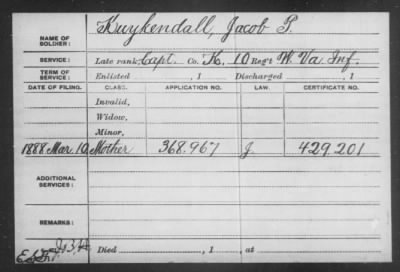 NAME OF SOLDIER: Kuykendall, Jacob P.
SERVICE: Late rank, Capt. Co. K, 10 Reg't W. Va. Inf.
TERM OF SERVICE: Enlisted , 1 Discharged , 1
DATE OF FILING. CLASS. APPLICATION NO. LAW. CERTIFICATE NO.
Invalid,
Widow,
Minor,
1888 Mar. 10 Mother 368.967 J. 429.201
ADDITIONAL SERVICES:
REMARKS:
Died , 1 , at